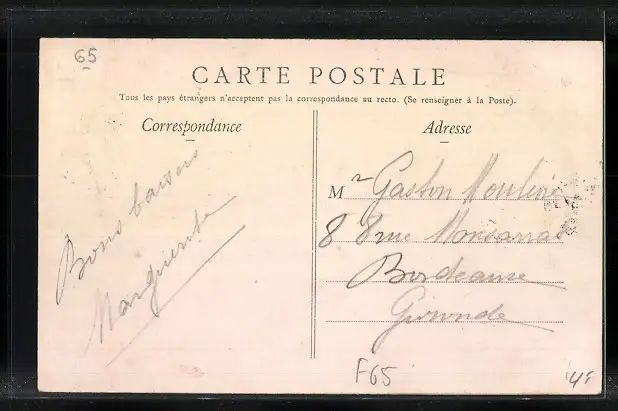 65
CARTE POSTALE
Tous les pays étrangers n'acceptent pas la correspondance au recto. (Se renseigner à la Poste).
Correspondance
Adresse
Bons baisers
Marguerite
Mr Gaston
88 rue
Bordeaux
Gironde
F65